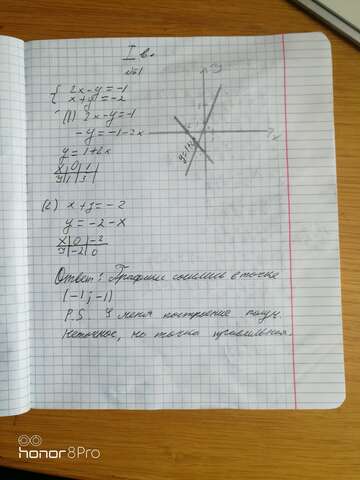 I в.
№1
{ 2x-y=-1
x+y=-2
(1) 2x-y=-1
-y=-1-2x
y=1+2x
x 0 1
y 1 3
(2) x+y=-2
y=-2-x
x 0 -2
y -2 0
y
x
y=1+2x
Ответ: Графики сошлись в точке
(-1;-1)
P.S. У меня построение получ.
неточное, но точка правильная.
honor8Pro